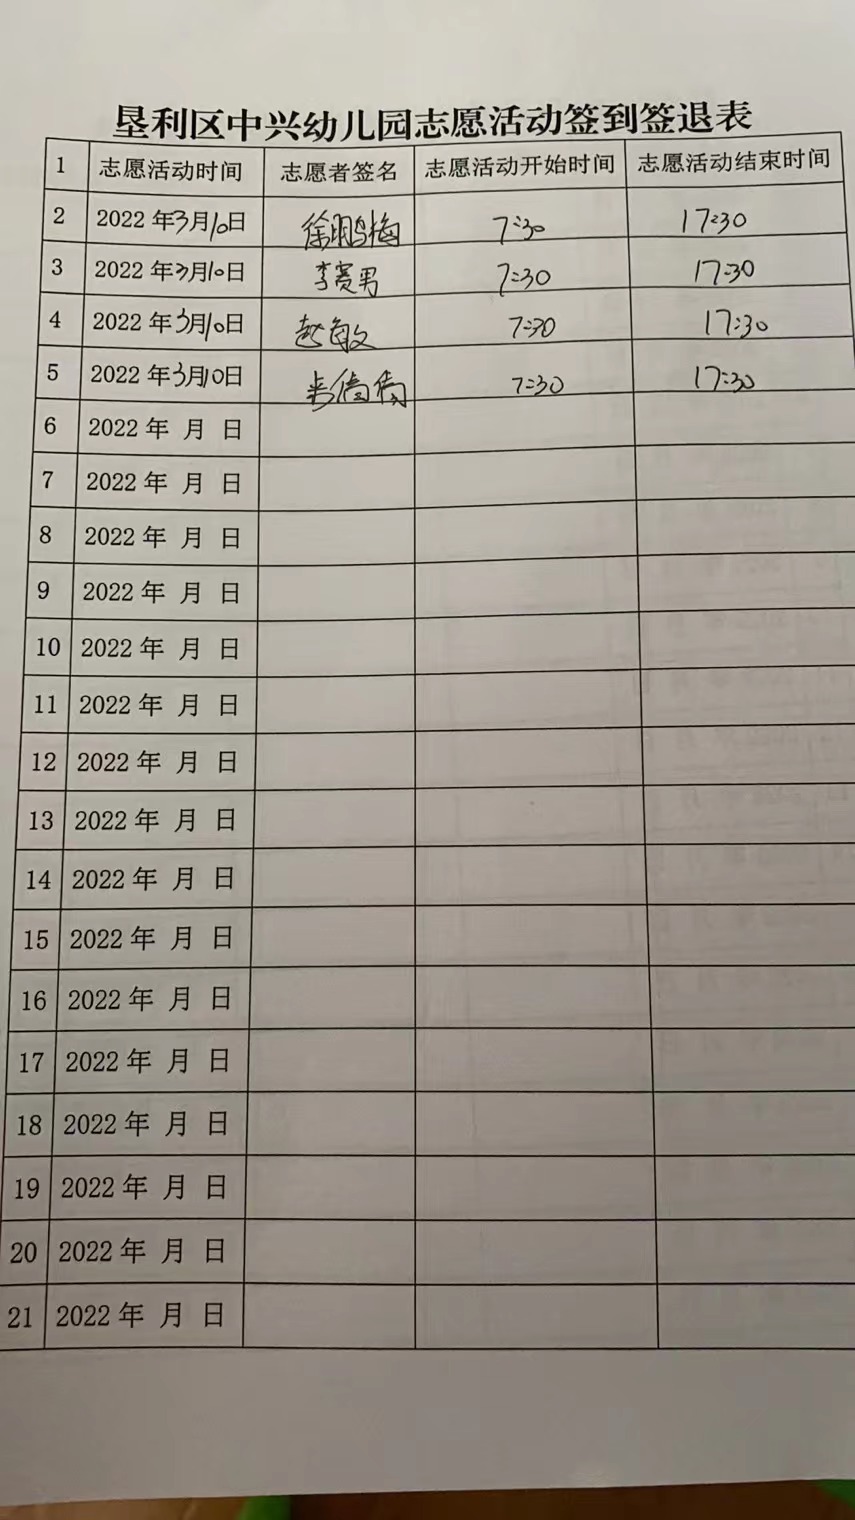 垦利区中兴幼儿园志愿活动签到签退表
1 志愿活动时间 志愿者签名 志愿活动开始时间 志愿活动结束时间
2 2022年3月10日 徐鹏梅 7:30 17:30
3 2022年3月10日 李赛男 7:30 17:30
4 2022年3月10日 赵敏 7:30 17:30
5 2022年3月10日 倩倩 7:30 17:30
6 2022年 月 日
7 2022年 月 日
8 2022年 月 日
9 2022年 月 日
10 2022年 月 日
11 2022年 月 日
12 2022年 月 日
13 2022年 月 日
14 2022年 月 日
15 2022年 月 日
16 2022年 月 日
17 2022年 月 日
18 2022年 月 日
19 2022年 月 日
20 2022年 月 日
21 2022年 月 日